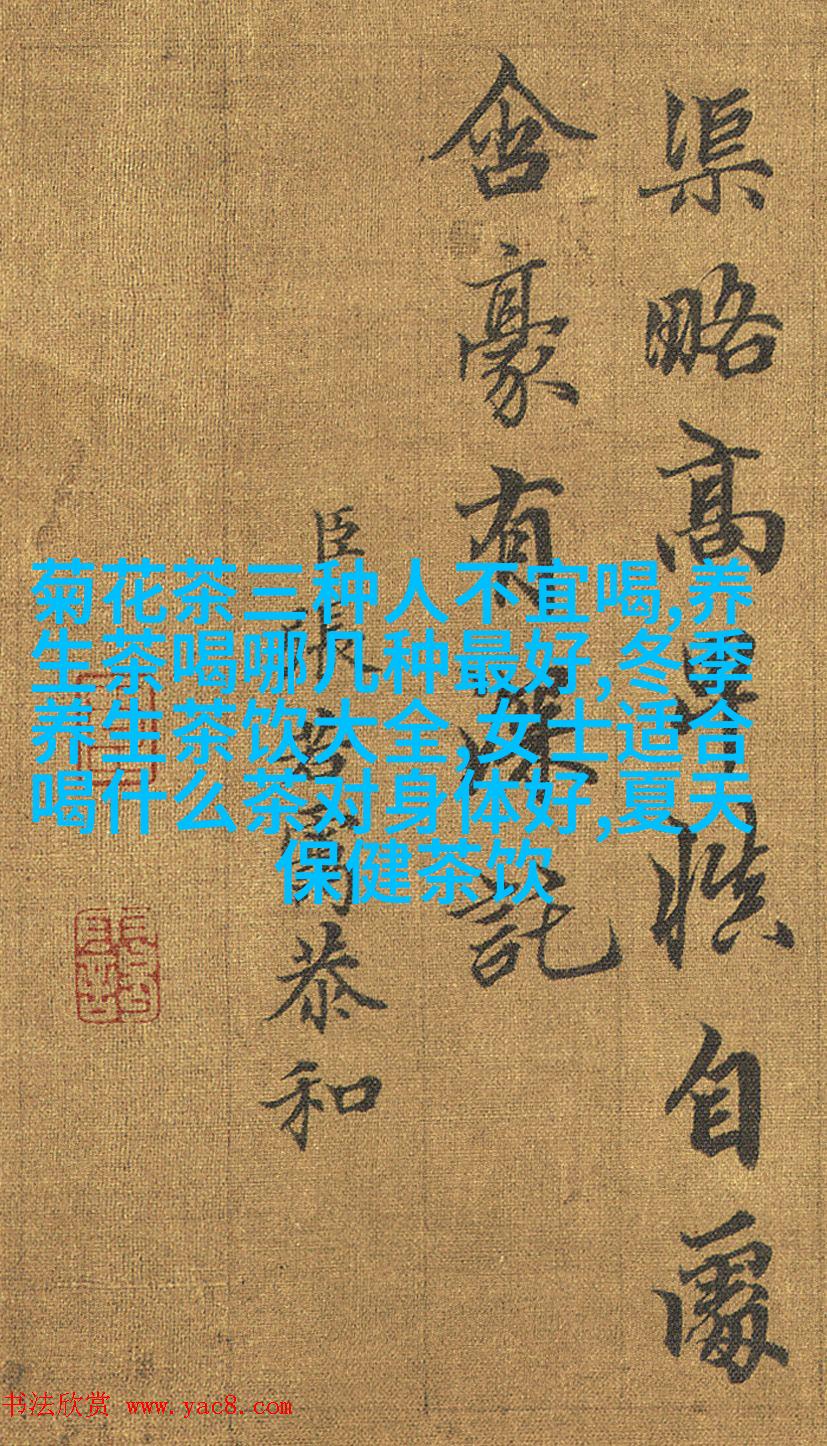 渠略高慎自處
含豪有託
臣張若恭和
菊花茶三种人不宜喝,养
生茶喝哪几种最好,冬季
养生茶饮大全,女士适合
喝什么茶对身体好,夏天
保健茶饮
书法欣赏 www.yac8.com